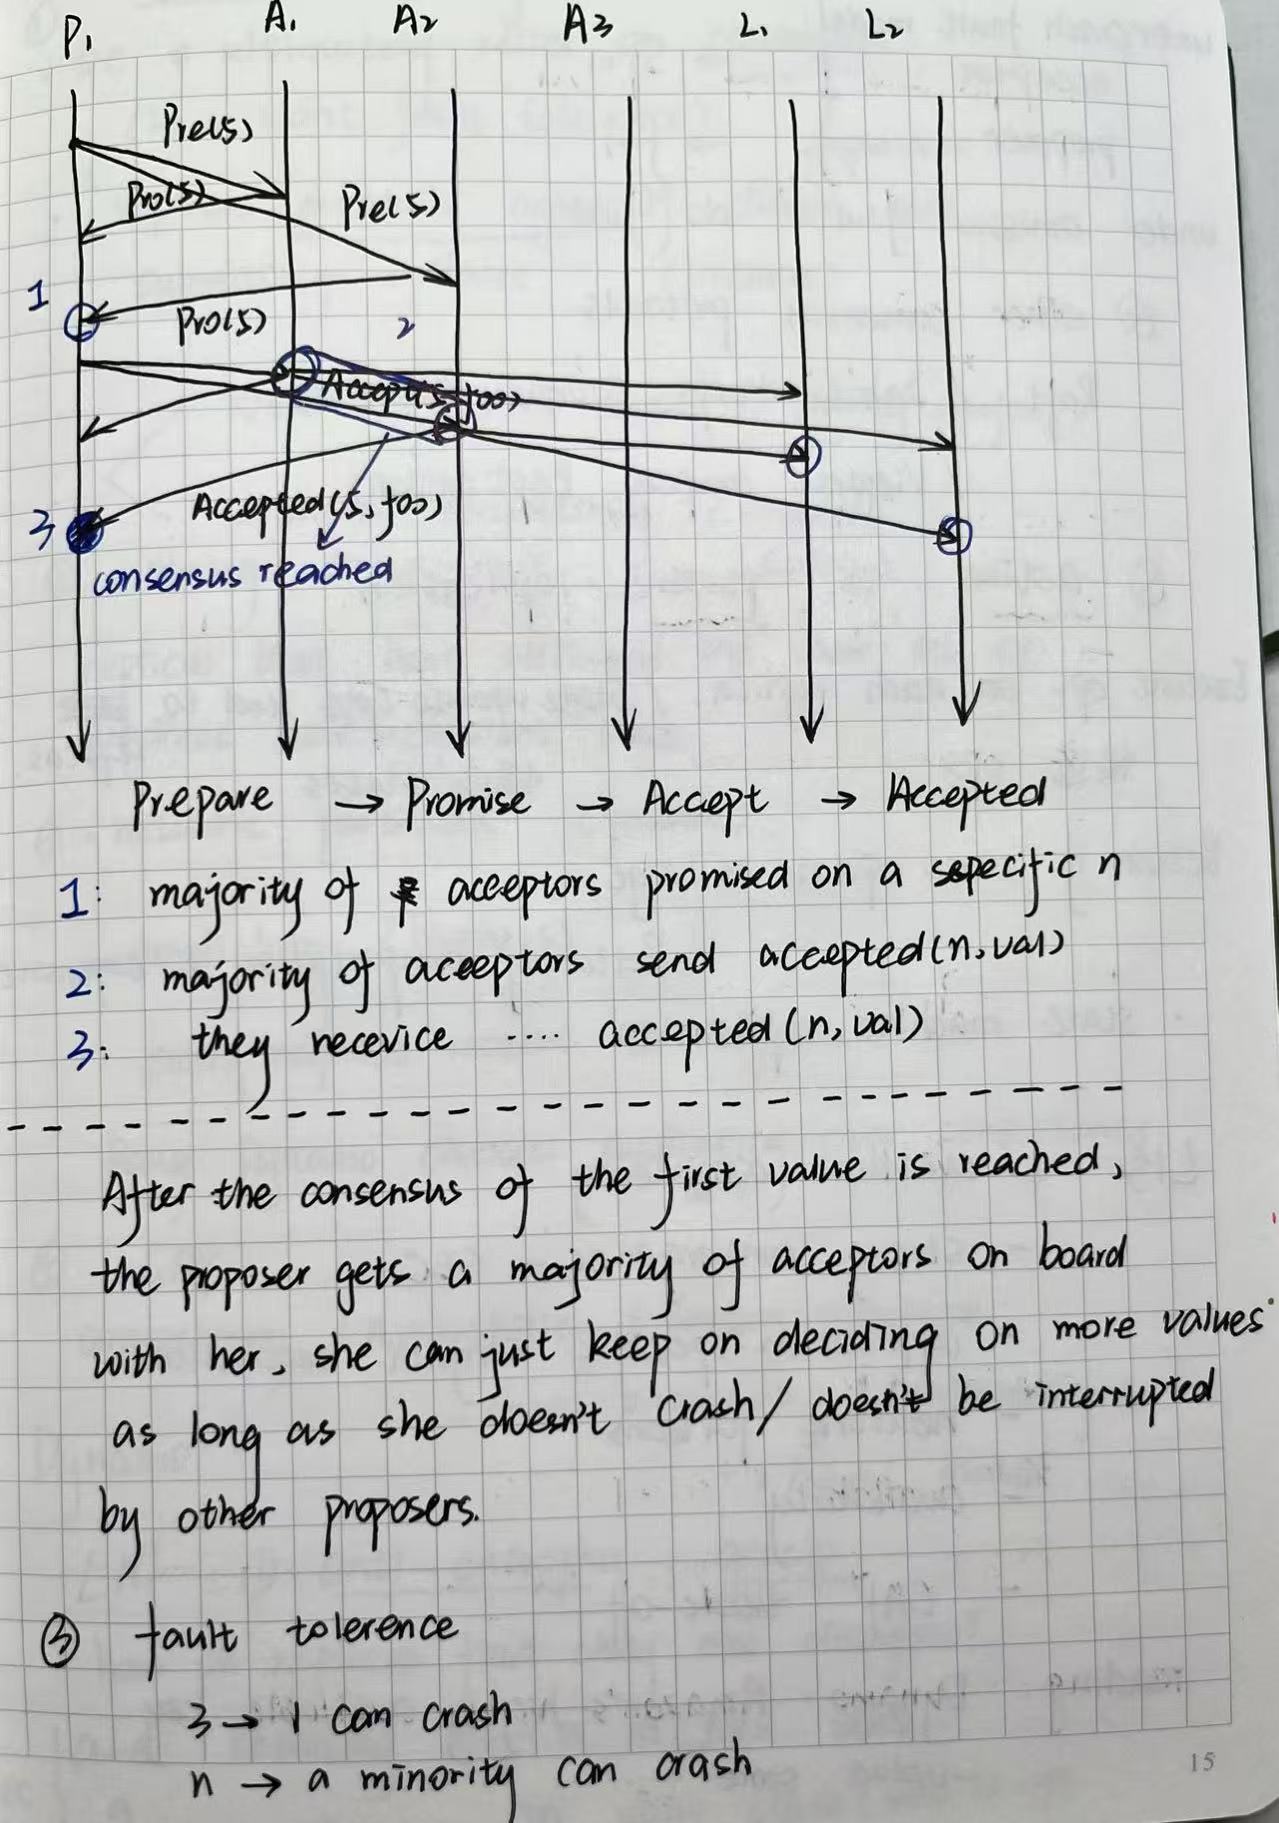 P1 A1 A2 A3 L1 L2
Pre(5)
Pro(5) Pre(5)
1
Pro(5) 2
Accept(5, foo)
Accepted(5, foo)
3
consensus reached
Prepare → Promise → Accept → Accepted
1: majority of acceptors promised on a sepecific n
2: majority of acceptors send accepted(n, val)
3: they recevice .... accepted(n, val)
After the consensus of the first value is reached,
the proposer gets a majority of acceptors on board
with her, she can just keep on deciding on more values
as long as she doesn't crash/ doesn't be interrupted
by other proposers.
③ fault tolerence
3 → 1 can crash
n → a minority can crash
15